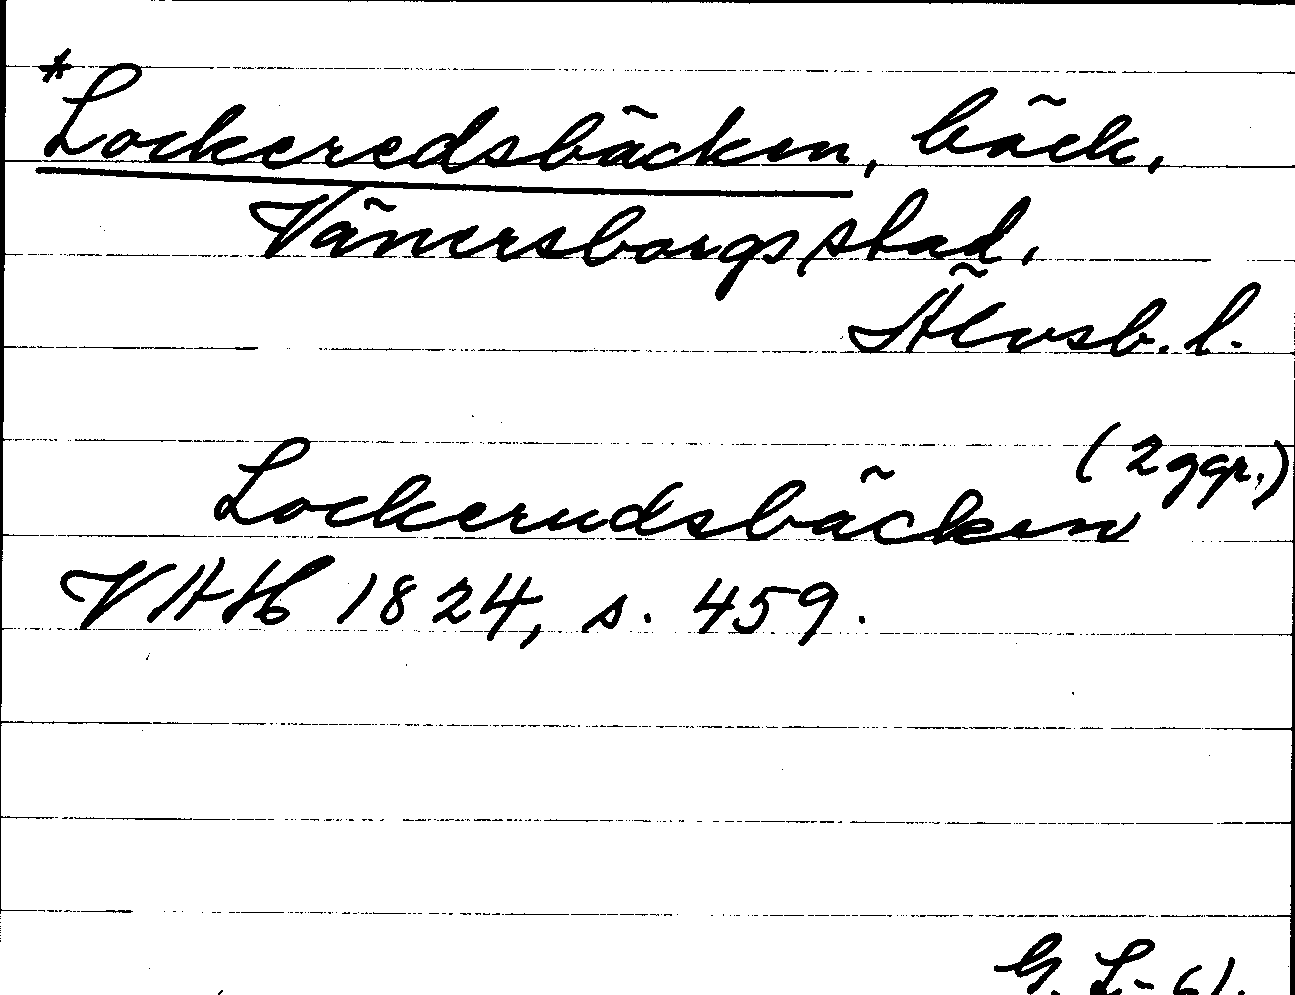 *Lockeredsbäcken, bäck,
Vänersborgs stad,
Älvsb. l.
(2 ggr.)
Lockerudsbäcken
VAH 1824, s. 459.
G. L-61.